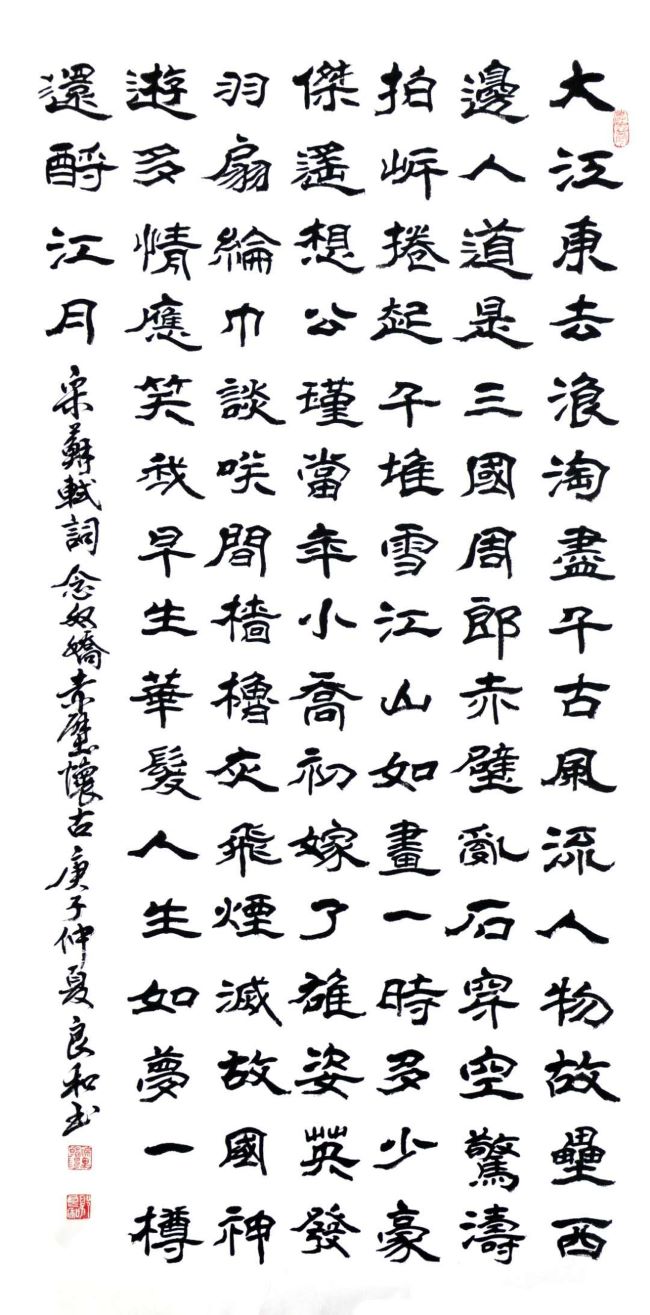 大江東去浪淘盡千古風流人物故壘西
邊人道是三國周郎赤壁亂石穿空驚濤
拍岍捲起千堆雪江山如畫一時多少豪
傑遥想公瑾當年小喬初嫁了雄姿英發
羽扇綸巾談咲間檣櫓灰飛煙滅故國神
遊多情應笑我早生華髮人生如夢一樽
還酹江月
宋蘇軾詞念奴嬌赤壁懷古庚子仲夏良和书